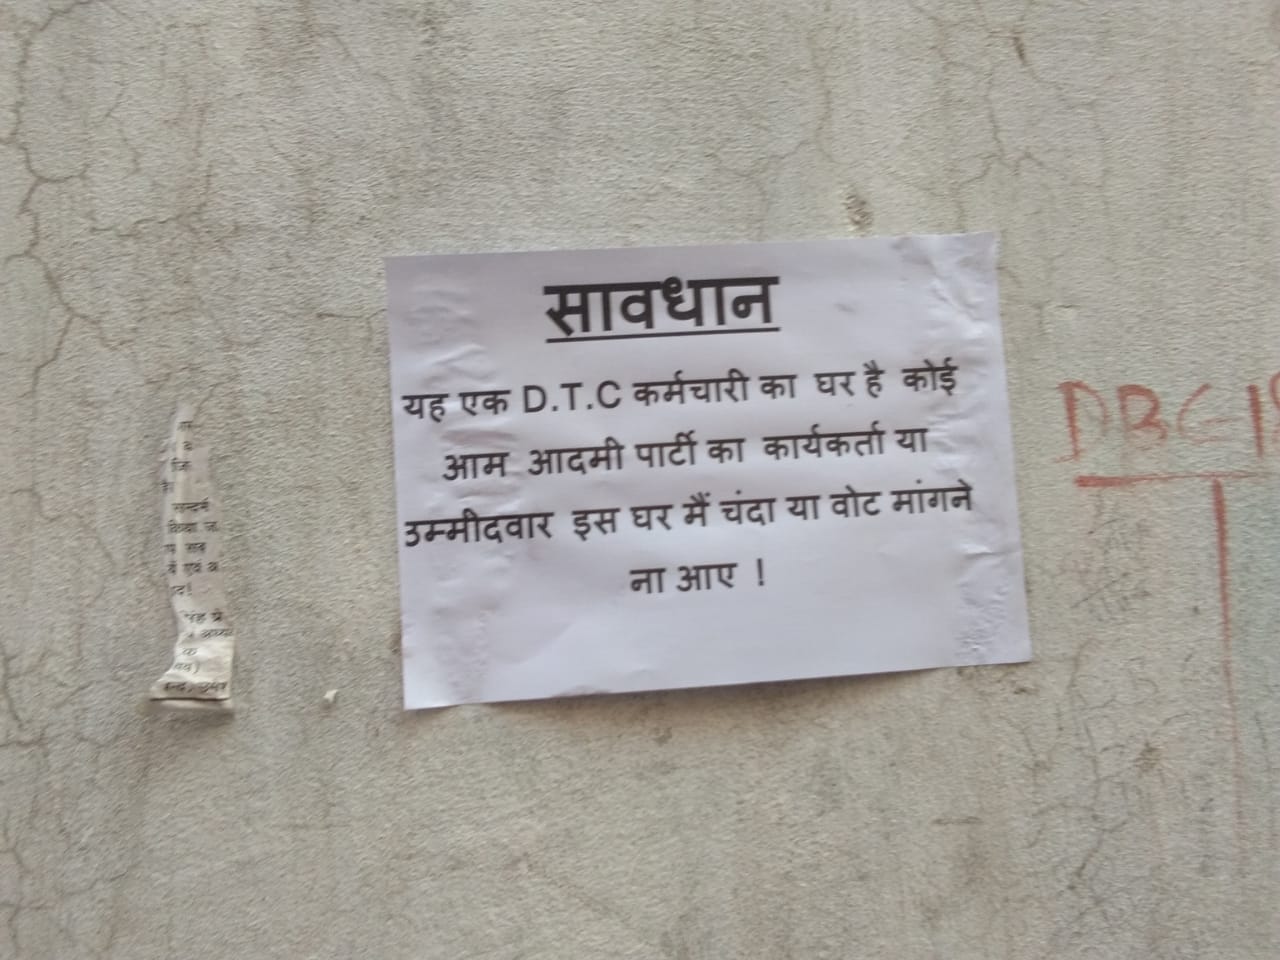 सावधान
यह एक D.T.C कर्मचारी का घर है कोई
आम आदमी पार्टी का कार्यकर्ता या
उम्मीदवार इस घर मैं चंदा या वोट मांगने
ना आए !